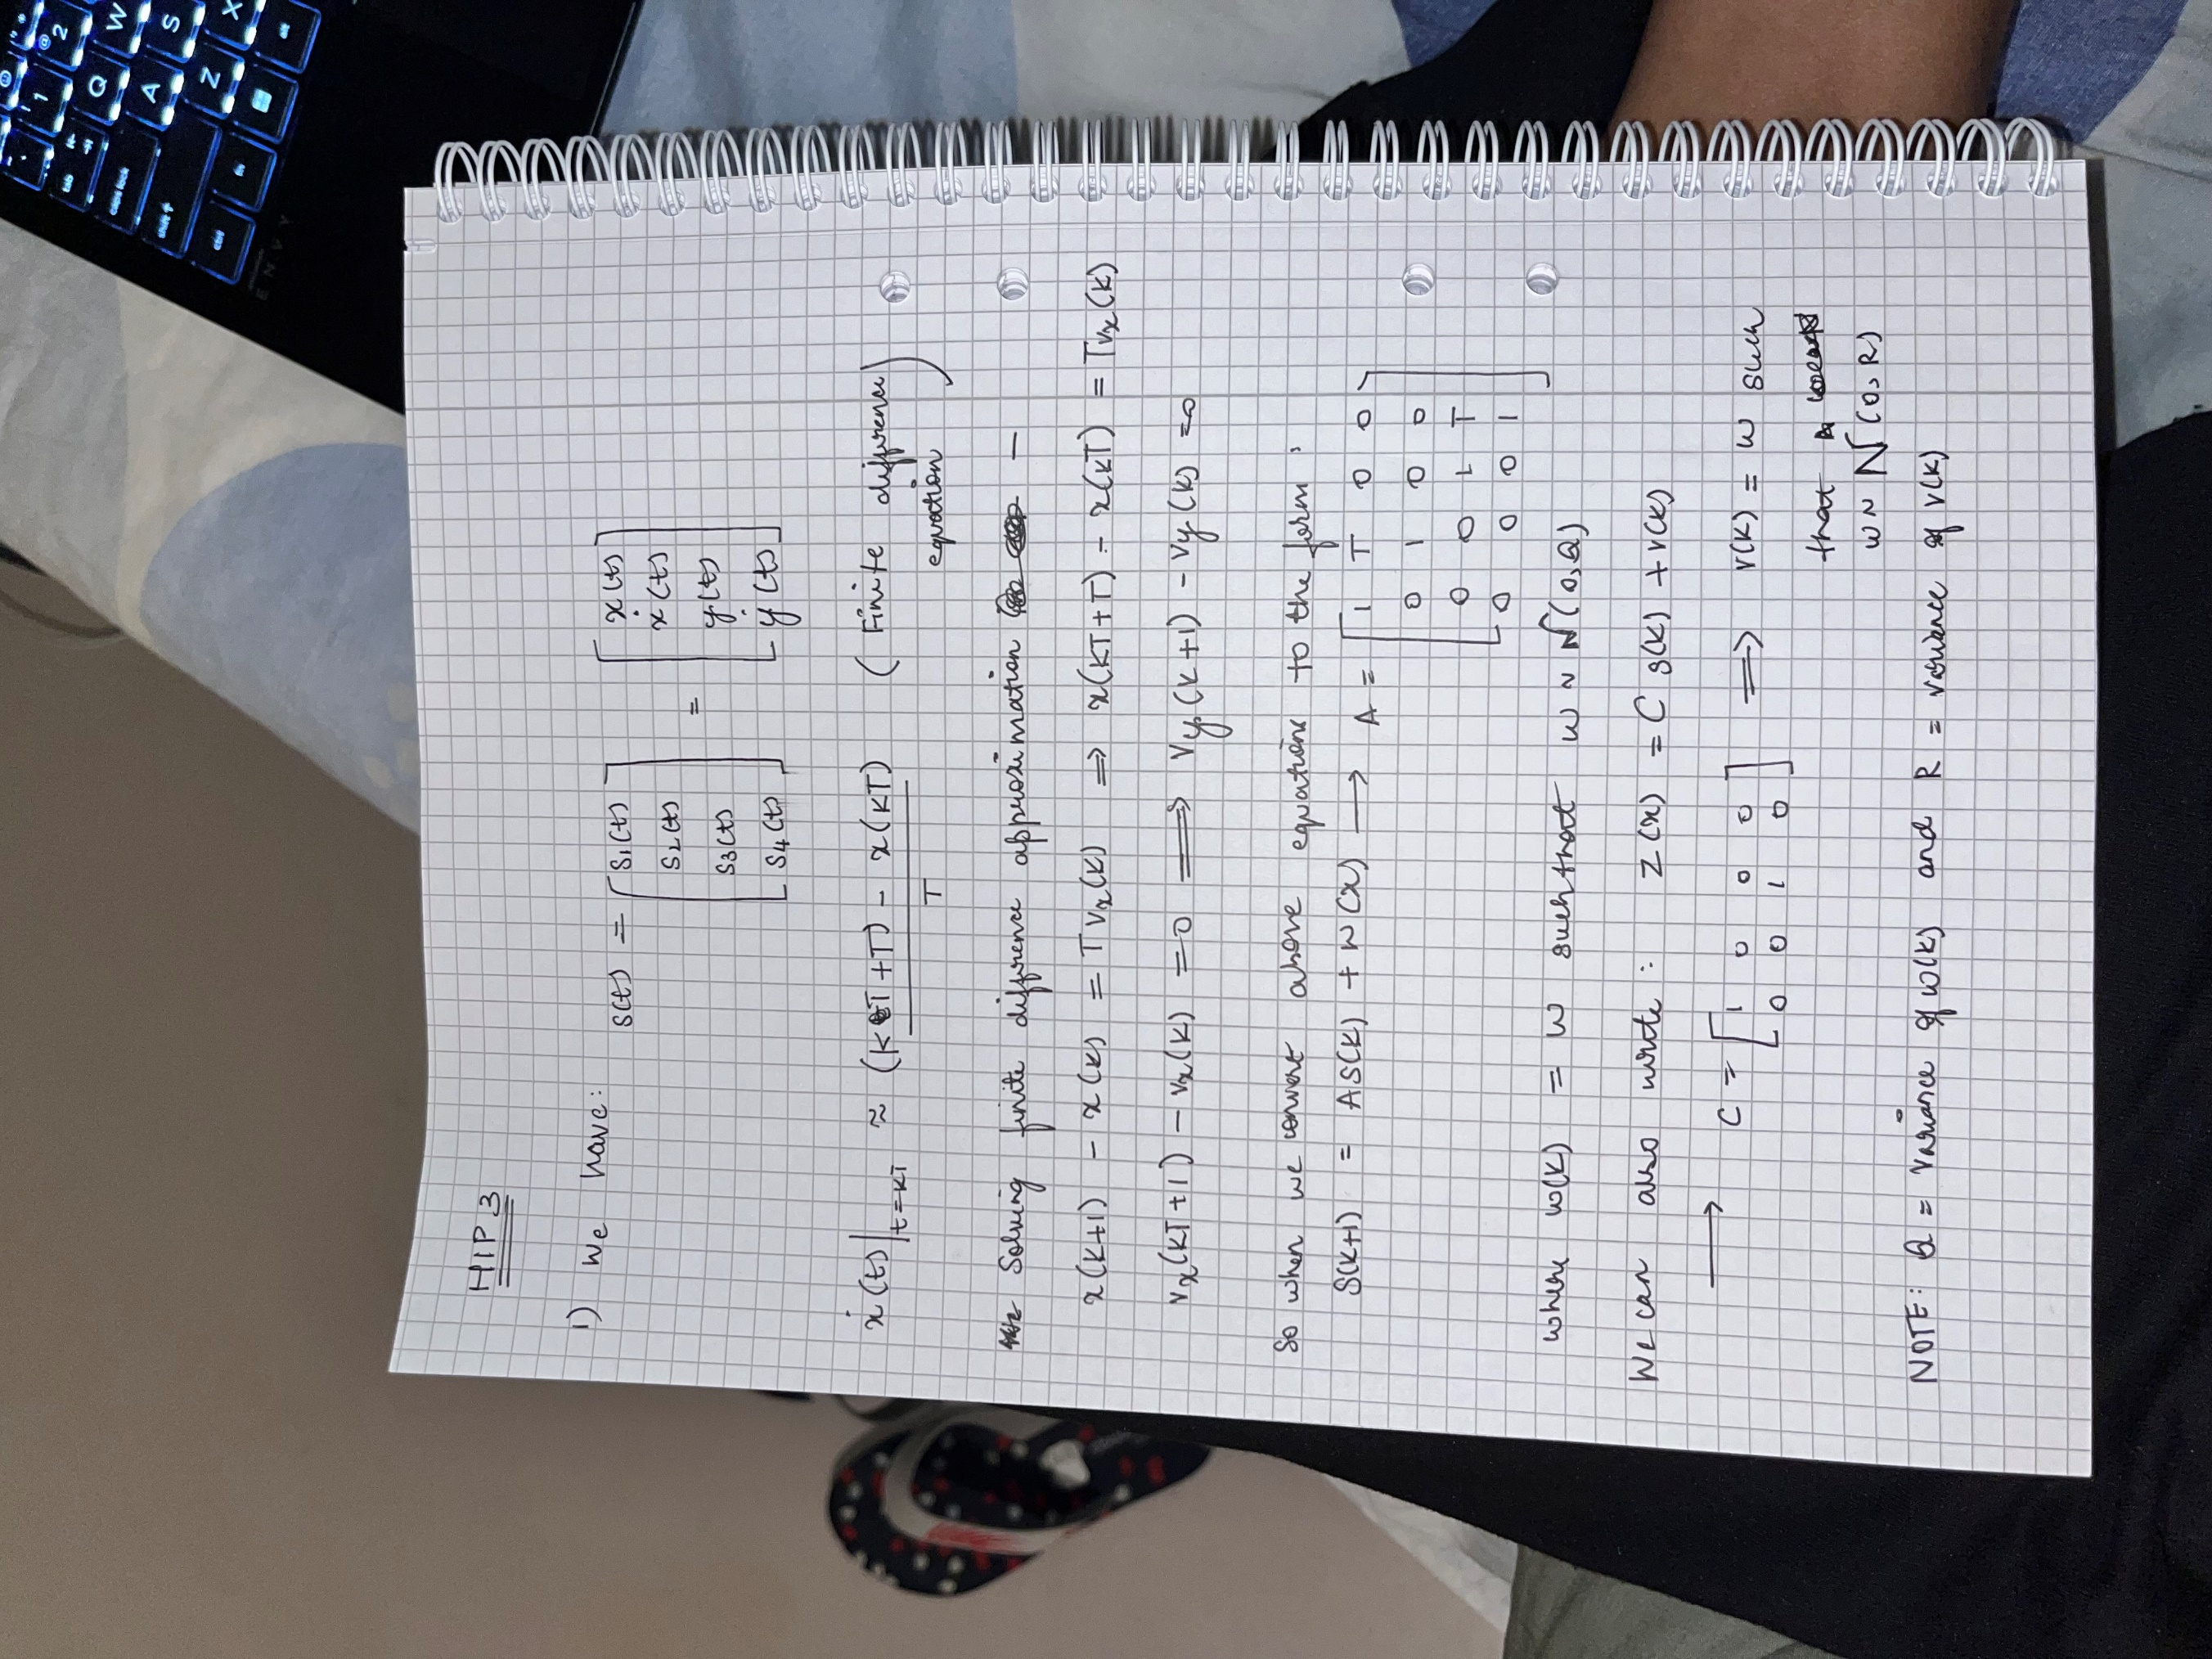 HIP 3
1) We have:
S(t) = [S1(t) S2(t) S3(t) S4(t)] = [x(t) ẋ(t) y(t) ẏ(t)]
ẋ(t)|t=kT ≈ (kT+T) - x(kT) / T (Finite difference equation)
Solving finite difference approximation —
x(k+1) - x(k) = Tvx(k) ⇒ x(kT+T) - x(kT) = Tvx(k)
vx(kT+1) - vx(k) = 0 ⟹ vy(k+1) - vy(k) = 0
So when we convert above equations to the form,
S(k+1) = AS(k) + w(x) ⟶ A = [1 T 0 0
0 1 0 0
0 0 1 T
0 0 0 1]
where w(k) = w such that w ~ N(0,Q)
We can also write: Z(x) = C s(k) + v(k)
⟶ C = [1 0 0 0
0 0 1 0] ⟹ v(k) = w such
that
w ~ N(0,R)
NOTE: Q = variance of w(k) and R = variance of v(k)
1
2
Q
W
A
S
Z
X
tab
caps lock
shift
ctrl
fn
alt
ENVY